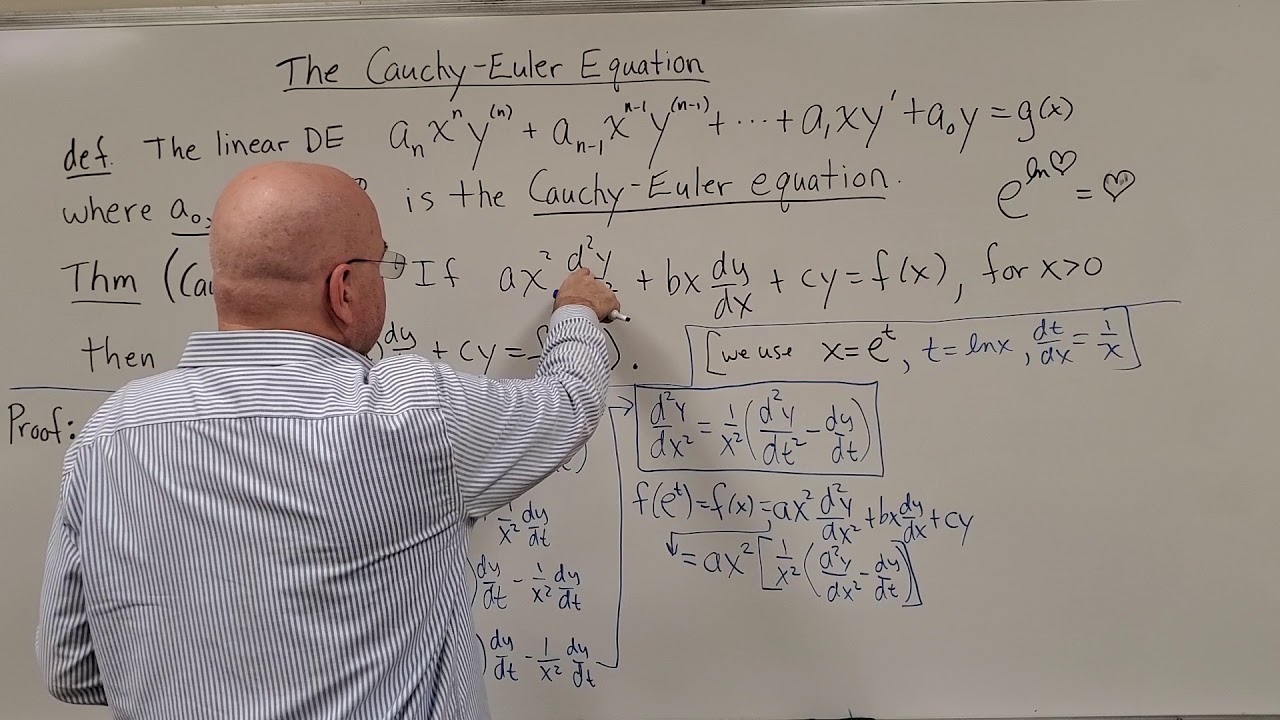 The Cauchy-Euler Equation
def. The linear DE aₙxⁿy⁽ⁿ⁾ + aₙ₋₁xⁿ⁻¹y⁽ⁿ⁻¹⁾ + ⋯ + a₁xy' + a₀y = g(x)
where a₀, is the Cauchy-Euler equation.
e^(ln♡) = ♡
Thm ( If ax² d²y + bx dy/dx + cy = f(x), for x>0
then dy + cy = ).
[we use x = eᵗ, t = lnx, dt/dx = 1/x]
Proof:
1/x² dy/dt
) dy/dt - 1/x² dy/dt
) dy/dt - 1/x² dy/dt
d²y/dx² = 1/x² (d²y/dt² - dy/dt)
f(eᵗ) = f(x) = ax² d²y/dx² + bx dy/dx + cy
= ax² [1/x² (d²y/dx² - dy/dt)]